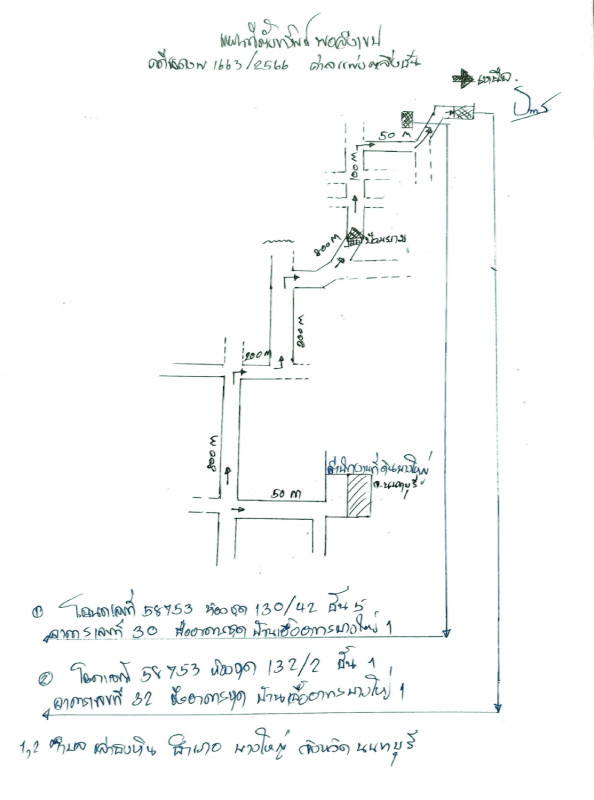 แผนที่ตั้งทรัพย์ พอสังเขป
คดีแดง ผบ 1663/2566 ศาลแขวงตลิ่งชัน
เหนือ
50 M
100 M
800 M
800 M
200 M
800 M
50 M
สำนักงานที่ดินบางใหญ่
จ.นนทบุรี
① โฉนดเลขที่ 58753 ห้องชุด 130/42 ชั้น 5
อาคารเลขที่ 30 ชื่ออาคารชุด บ้านเอื้ออาทรบางใหญ่ 1
② โฉนดเลขที่ 58753 ห้องชุด 132/2 ชั้น 1
อาคารเลขที่ 32 ชื่ออาคารชุด บ้านเอื้ออาทรบางใหญ่ 1
1,2 ตำบล เสาธงหิน อำเภอ บางใหญ่ จังหวัด นนทบุรี